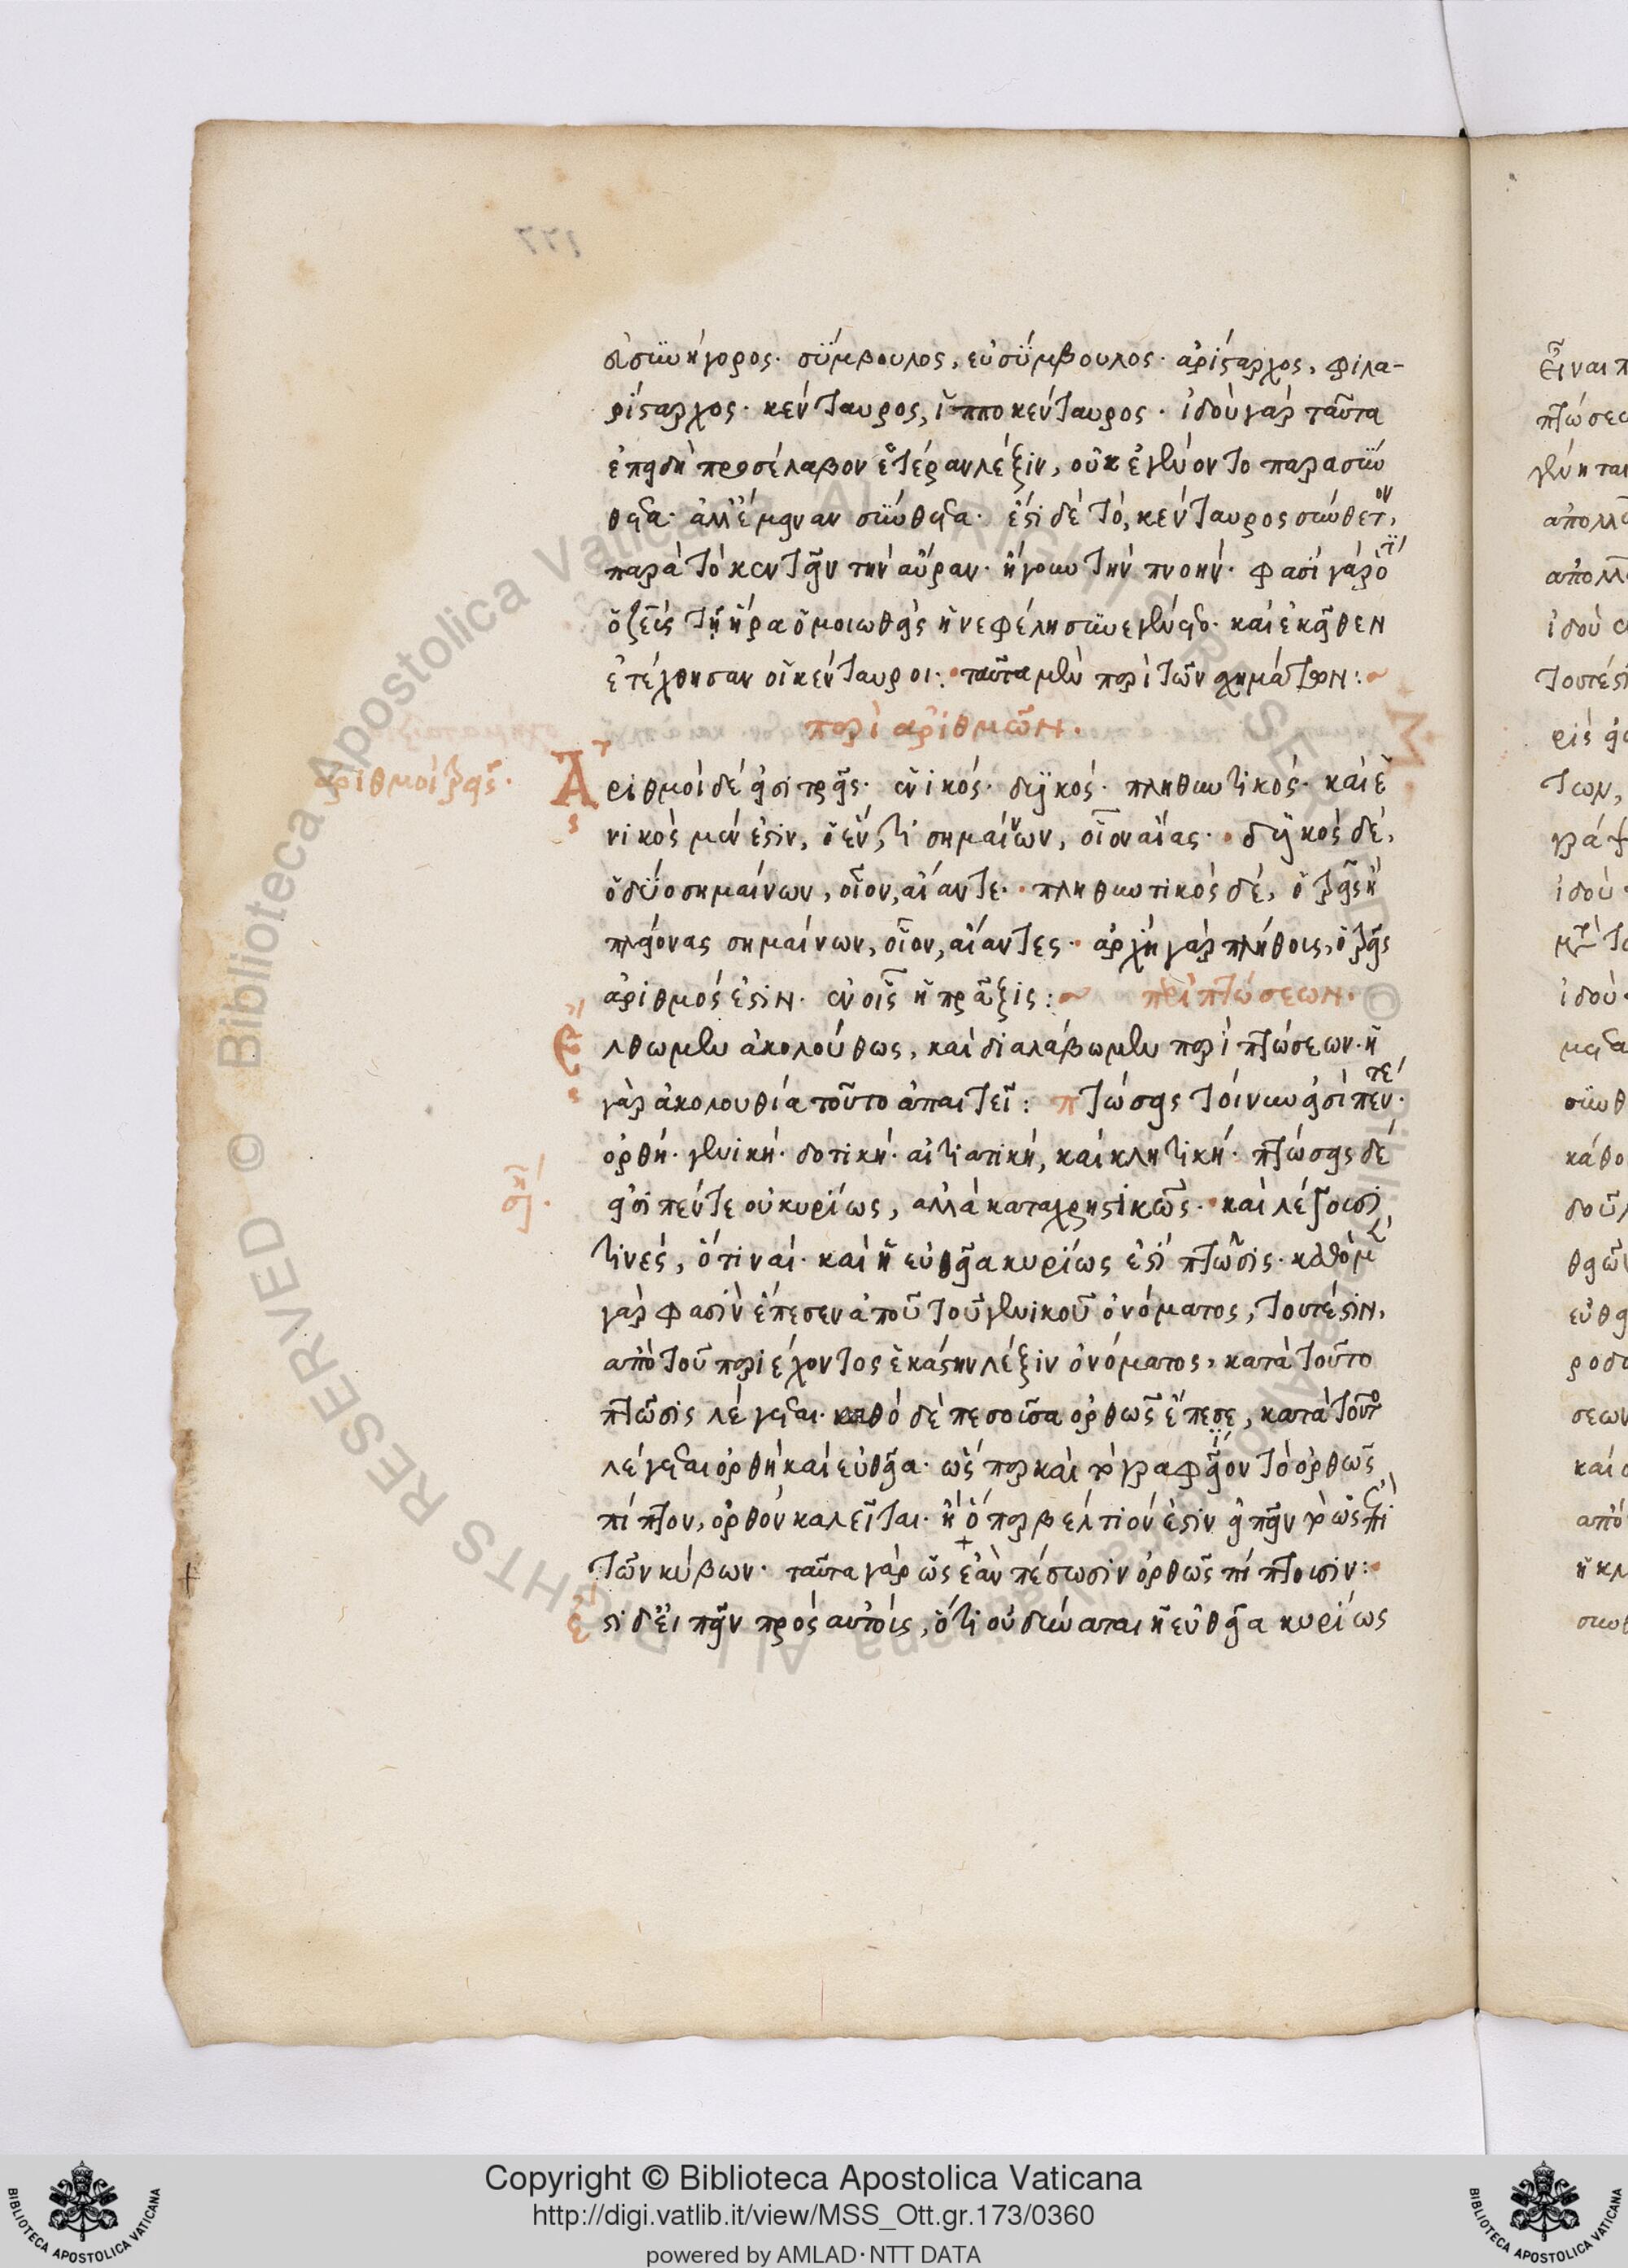 συνήγορος· σύμβουλος, εὐσύμβουλος· ἀρίσταρχος, φιλα-
ρίσταρχος· κένταυρος, ἱπποκένταυρος· ἰδοὺ γὰρ ταῦτα
ἐπειδὴ προσέλαβον ἑτέραν λέξιν, οὐκ ἐγένοντο παρασύν
θετα· ἀλλ' ἔμειναν σύνθετα· ἔστι δὲ τὸ, κένταυρος σύνθετον,
παρὰ τὸ κεντεῖν τὴν αὔραν· ἤγουν τὴν πνοήν· φασὶ γὰρ ὅτι
ὁ ζεὺς τῇ ἥρα ὁμοιωθεὶς ἡ νεφέλη συνεγένετο· καὶ ἐκεῖθεν
ἐτέχθησαν οἱ κένταυροι: ταῦτα μὲν περὶ τῶν σχημάτων:~
περὶ ἀριθμῶν.
ἀριθμοὶ τρεῖς.
Ἀριθμοὶ δέ εἰσι τρεῖς· ἑνικός· δυϊκός· πληθυντικός· καὶ ἑ
νικὸς μέν ἐστιν, ὁ ἕν, τι σημαίνων, οἷον αἴας· δυϊκὸς δὲ,
ὁ δύο σημαίνων, οἷον, αἴαντε· πληθυντικὸς δέ, ὁ τρεῖς ἢ
πλείονας σημαίνων, οἷον, αἴαντες· ἀρχὴ γὰρ πλήθους, ὁ τρεῖς
ἀριθμός ἐστιν· ἐν οἷς ἡ πρᾶξις:~ περὶ πτώσεων.
Ἔλθωμεν ἀκολούθως, καὶ διαλάβωμεν περὶ πτώσεων· ἡ
γὰρ ἀκολουθία τοῦτο ἀπαιτεῖ: πτώσεις τοίνυν εἰσὶ πέντε·
ὀρθή· γενική· δοτική· αἰτιατική, καὶ κλητική· πτώσεις δέ
σημ.
εἰσι πέντε οὐ κυρίως, ἀλλὰ καταχρηστικῶς· καὶ λέγουσί
τινές, ὅτι ναί· καὶ ἡ εὐθεῖα κυρίως ἐστί πτῶσις· καθὸ μὲν
γὰρ φασὶν ἔπεσεν ἀποῦ τοῦ γενικοῦ ὀνόματος, τουτέστιν,
ἀπὸ τοῦ περιέχοντος ἑκάστην λέξιν ὀνόματος, κατὰ τοῦτο
πτῶσις λέγεται· καθὸ δὲ πεσοῦσα ὀρθῶς ἔπεσε, κατὰ τοῦτο
λέγεται ὀρθὴ καὶ εὐθεῖα· ὥσπερ καὶ τὸ γραφεῖον τὸ ὀρθῶς
πίπτον, ὀρθὸν καλεῖται· ἢ ὅπερ βέλτιόν ἐστιν εἰπεῖν τὸ ὡς ἐπὶ
τῶν κύβων· ταῦτα γὰρ ὡς ἐὰν πέσωσιν ὀρθῶς πίπτουσιν:
ἔστι δ' εἰπεῖν πρὸς αὐτοὺς, ὅτι οὐ δύναται ἡ εὐθεῖα κυρίως
Copyright © Biblioteca Apostolica Vaticana
http://digi.vatlib.it/view/MSS_Ott.gr.173/0360
powered by AMLAD·NTT DATA